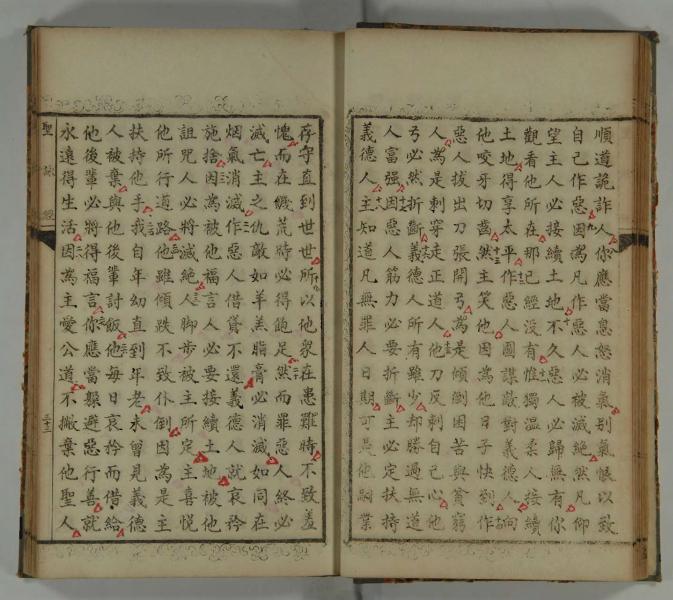 順道詭詐人你應當息怒消氣别氣恨以致
自己作惡因為凡作惡人必被滅絶然凡仰
望主人必接續土地不久惡人必歸無有你
觀看他所在那已經沒有惟獨溫柔人接續
土地得享太平作惡人圖謀敵對義德人向
他咬牙切齒然主笑他因為他日子快到作
惡人拔出刀張開弓為是傾倒困苦與貧窮
人為是刺穿走正道人他刀反刺自己心他
弓必然折斷義德人所有雖少却勝過無道
人富强因惡人筋力必要折斷主必定扶持
義德人主知道凡無罪人日期可是他嗣業
存守直到世世所以他衆在患難時不致羞
愧而在饑荒時必得飽足然而罪惡人終必
滅亡主之仇敵如羊羔脂膏必消滅如同在
烟氣消滅作惡人借貸不還義德人就哀矜
施捨因為被他福言人必要接續土地被他
詛咒人必將滅絶人脚步被主所定主喜悅
他所行道路他雖傾跌不致仆倒因為是主
扶持他手我自年幼直到年老未曾見義德
人被棄與他後輩討飯他每日哀矜而借給
他後輩必將得福言你應當躱避惡行善就
永遠得生活因為主愛公道不撇棄他聖人
聖詠經
三十三